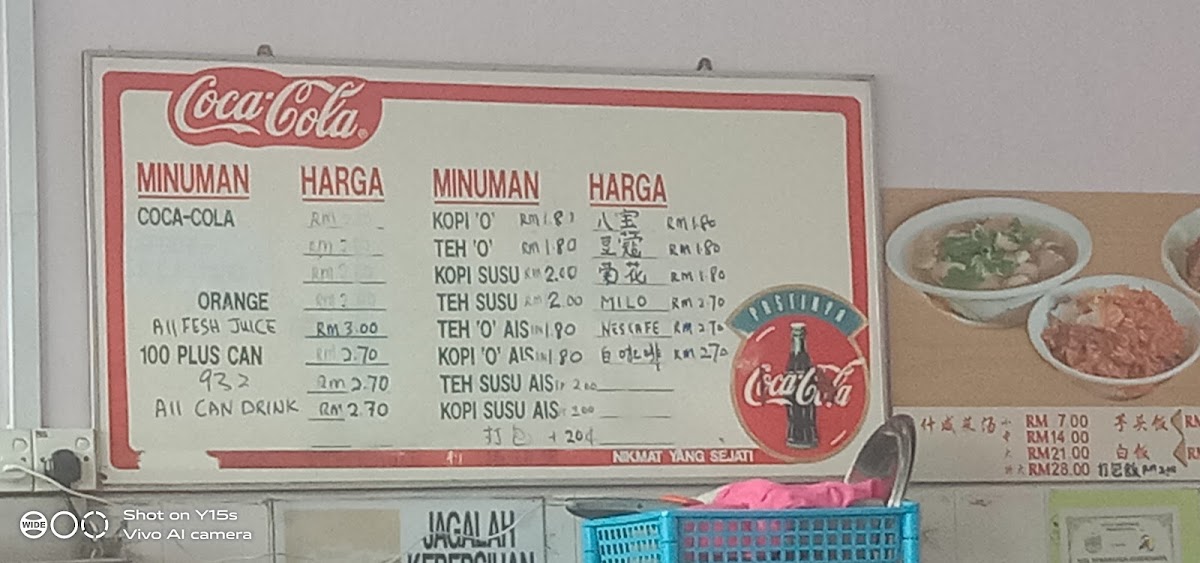 Coca-Cola
MINUMAN HARGA MINUMAN HARGA
COCA-COLA RM KOPI 'O' RM 1.80 八宝 RM 1.80
TEH 'O' RM 1.80 豆蔻 RM 1.80
KOPI SUSU RM 2.00 菊花 RM 1.80
ORANGE TEH SUSU RM 2.00 MILO RM 2.70
All FESH JUICE RM 3.00 TEH 'O' AIS 1.80 NESCAFE RM 2.70
100 PLUS CAN RM 2.70 KOPI 'O' AIS 1.80 白咖啡 RM 2.70
932 RM 2.70 TEH SUSU AIS 2.00
All CAN DRINK RM 2.70 KOPI SUSU AIS
打包 + 20¢
PASTINYA
Coca-Cola
NIKMAT YANG SEJATI
什咸菜汤 小 RM 7.00 芋头饭
中 RM 14.00
大 RM 21.00 白饭
特大 RM 28.00 打包飯
JAGALAH
KEBERSIHAN
WIDE
Shot on Y15s
Vivo AI camera